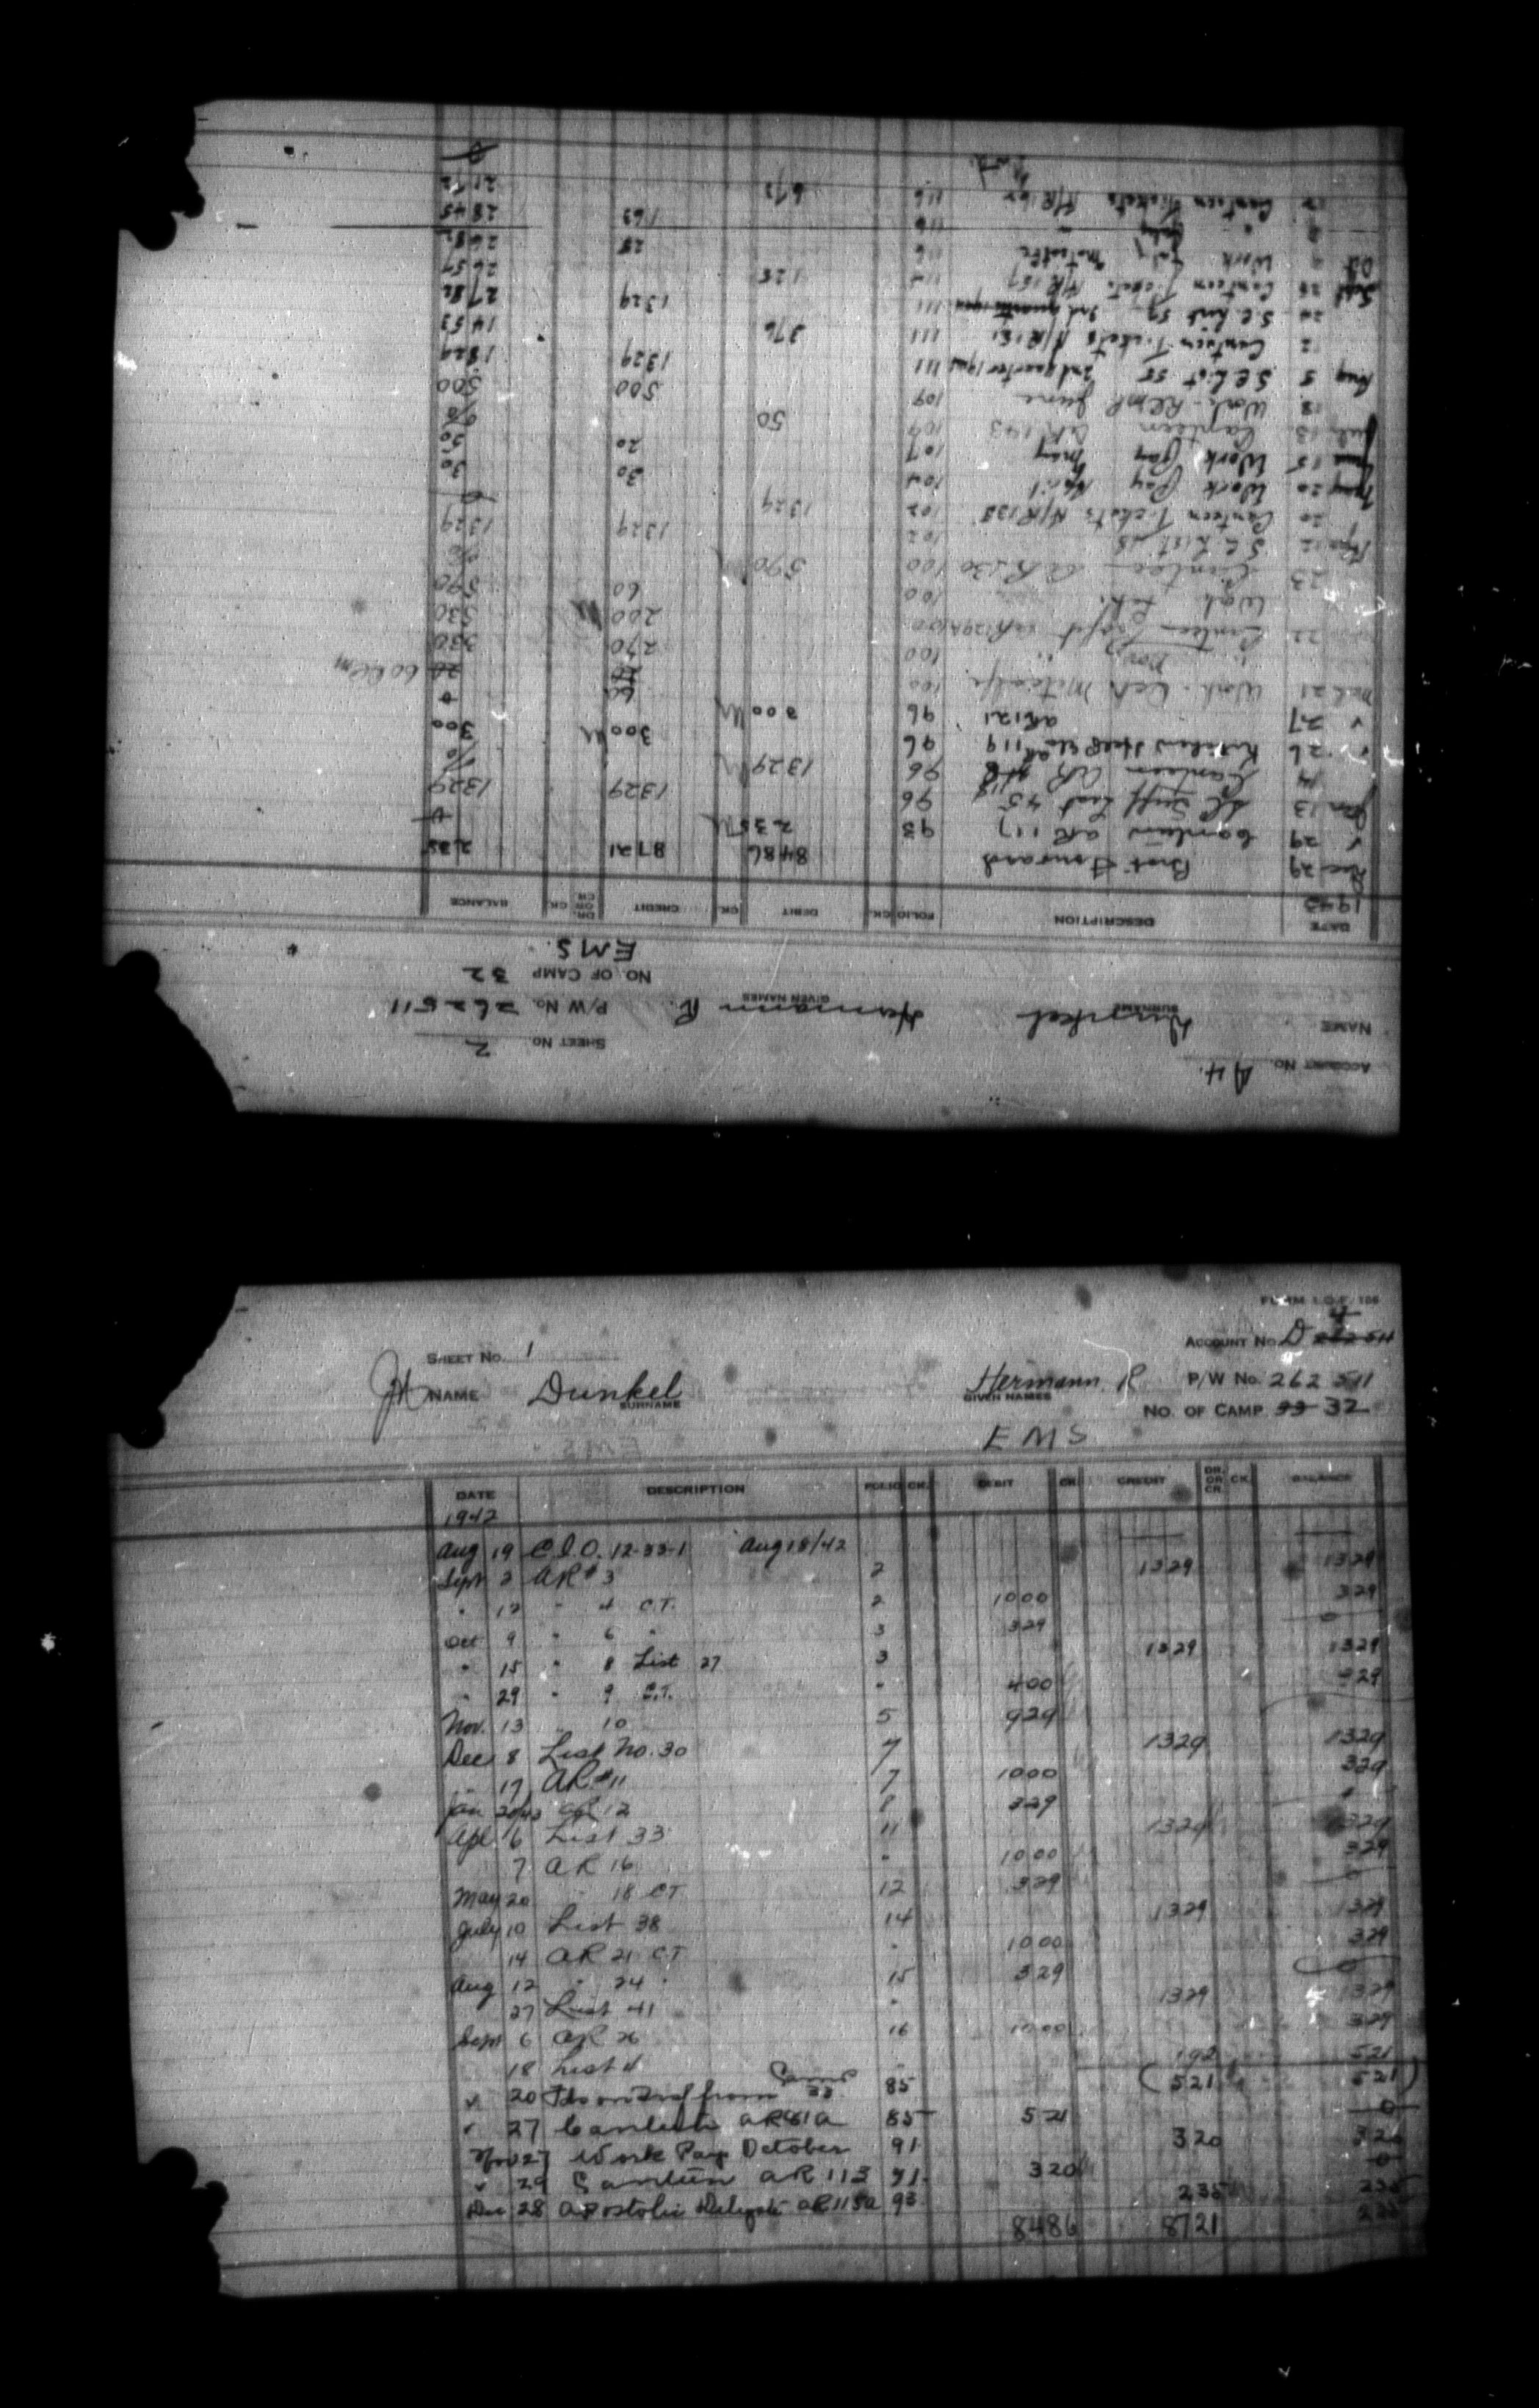 ACCOUNT NO. D4.
SHEET NO. 2
NAME Dunkel Hermann R. P/W No. 262511
SURNAME GIVEN NAMES
NO. OF CAMP 32
EMS.
DATE DESCRIPTION FOLIO CK. DEBIT CK. CREDIT DR. OR CR. CK. BALANCE
1943
Dec 29 Brot Forward 8486 8721 235
" 29 Canteen AR 117 93 235 0
Jan 13 List 45 96 1329 1329
14 Canteen AR 118 96 1329 %
" 26 119 96 300 300
" 27 AR121 96 300 0
Mch 21 Work Feb. Metcalfe 100 60
" " Nov " 100 270 330
22 Canteen Profit AR129A 100 200 530
Work Feb. 100 60 590
23 Canteen AR130 100 590 %
Apr 12 S.C. List 102 1329 1329
" 20 Canteen Tickets A/R 135 102 1329 0
May 20 Work Pay April 104 30 30
June 15 Work Pay May 107 20 50
July 13 Canteen AR143 109 50 %
18 Work June 109 500 500
Aug 5 S.C. List 55 2nd quarter 111 1329 1829
12 Canteen Tickets A/R151 111 376 1453
26 S.C. List 59 3rd quarter 111 1329 2782
Sept 28 Canteen Tickets A/R 157 114 125 2657
Oct 9 Work July Metcalfe 116 25 2682
116 163 2845
12 Canteen Tickets A/R162 116 673 2172
FORM I.O.F. 106
ACCOUNT NO. D 4 262511
SHEET NO. 1
NAME Dunkel Hermann R P/W No. 262 511
SURNAME GIVEN NAMES
NO. OF CAMP 33 32
EMS
DATE DESCRIPTION FOLIO CK. DEBIT CK. CREDIT DR. OR CR. CK. BALANCE
1942
Aug 19 C.I.O. 12-33-1 Aug 18/42
Sept 2 AR #3 2 1329 1329
" 12 " 4 C.T. 2 1000 329
Oct 9 " 6 " 3 329 0
" 15 " 8 List 27 3 1329 1329
" 29 " 9 C.T. " 400 929
Nov. 13 10 5 929
Dec 8 List No. 30 7 1329 1329
" 17 AR #11 7 1000 329
Jan 20/43 AR 12 8 329 0
Apl 6 List 33 11 1329 1329
7 AR 16 " 1000 329
May 20 " 18 CT 12 329 0
July 10 List 38 14 1329 1329
14 AR 21 C.T " 1000 329
Aug 12 " 24 " 15 329 0
27 List 41 " 1329 1329
Sept 6 AR 26 16 1000 329
18 List 192 521
" 20 from Camp 33 85 (521 521)
" 27 Canteen AR81A 85 521 0
Nov 27 Work Pay October 91 320 320
" 29 Canteen AR 113 91 320 0
Dec 28 Apostolic Delegate AR115A 93 235 235
8486 8721 235